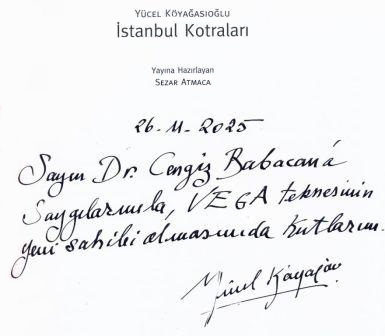 YÜCEL KÖYAĞASIOĞLU
İstanbul Kotraları
Yayına Hazırlayan
SEZAR ATMACA
26-11-2025
Sayın Dr. Cengiz Babacan'a
Saygılarımla, VEGA teknesinin
yeni sahibi olmasında kutlarım.
Yücel Köyağas